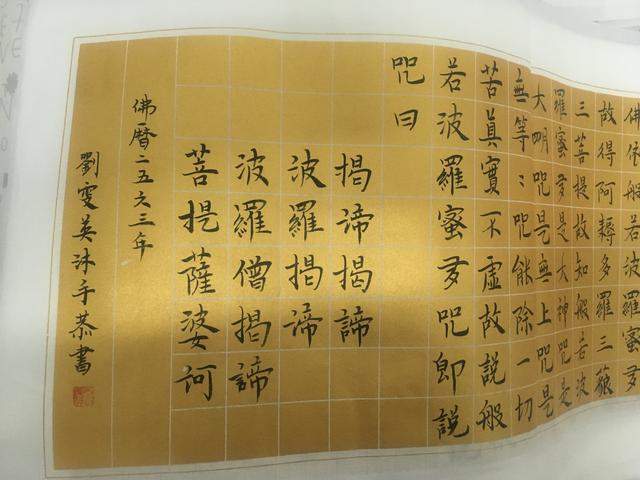 佛依般若波羅蜜多
故得阿耨多羅三藐
三菩提故知般若波
羅蜜多是大神咒是
大明咒是無上咒是
無等〻咒能除一切
苦真實不虛故說般
若波羅蜜多咒即說
咒曰
揭諦揭諦
波羅揭諦
波羅僧揭諦
菩提薩婆訶
佛曆二五六三年
劉雯英沐手恭書